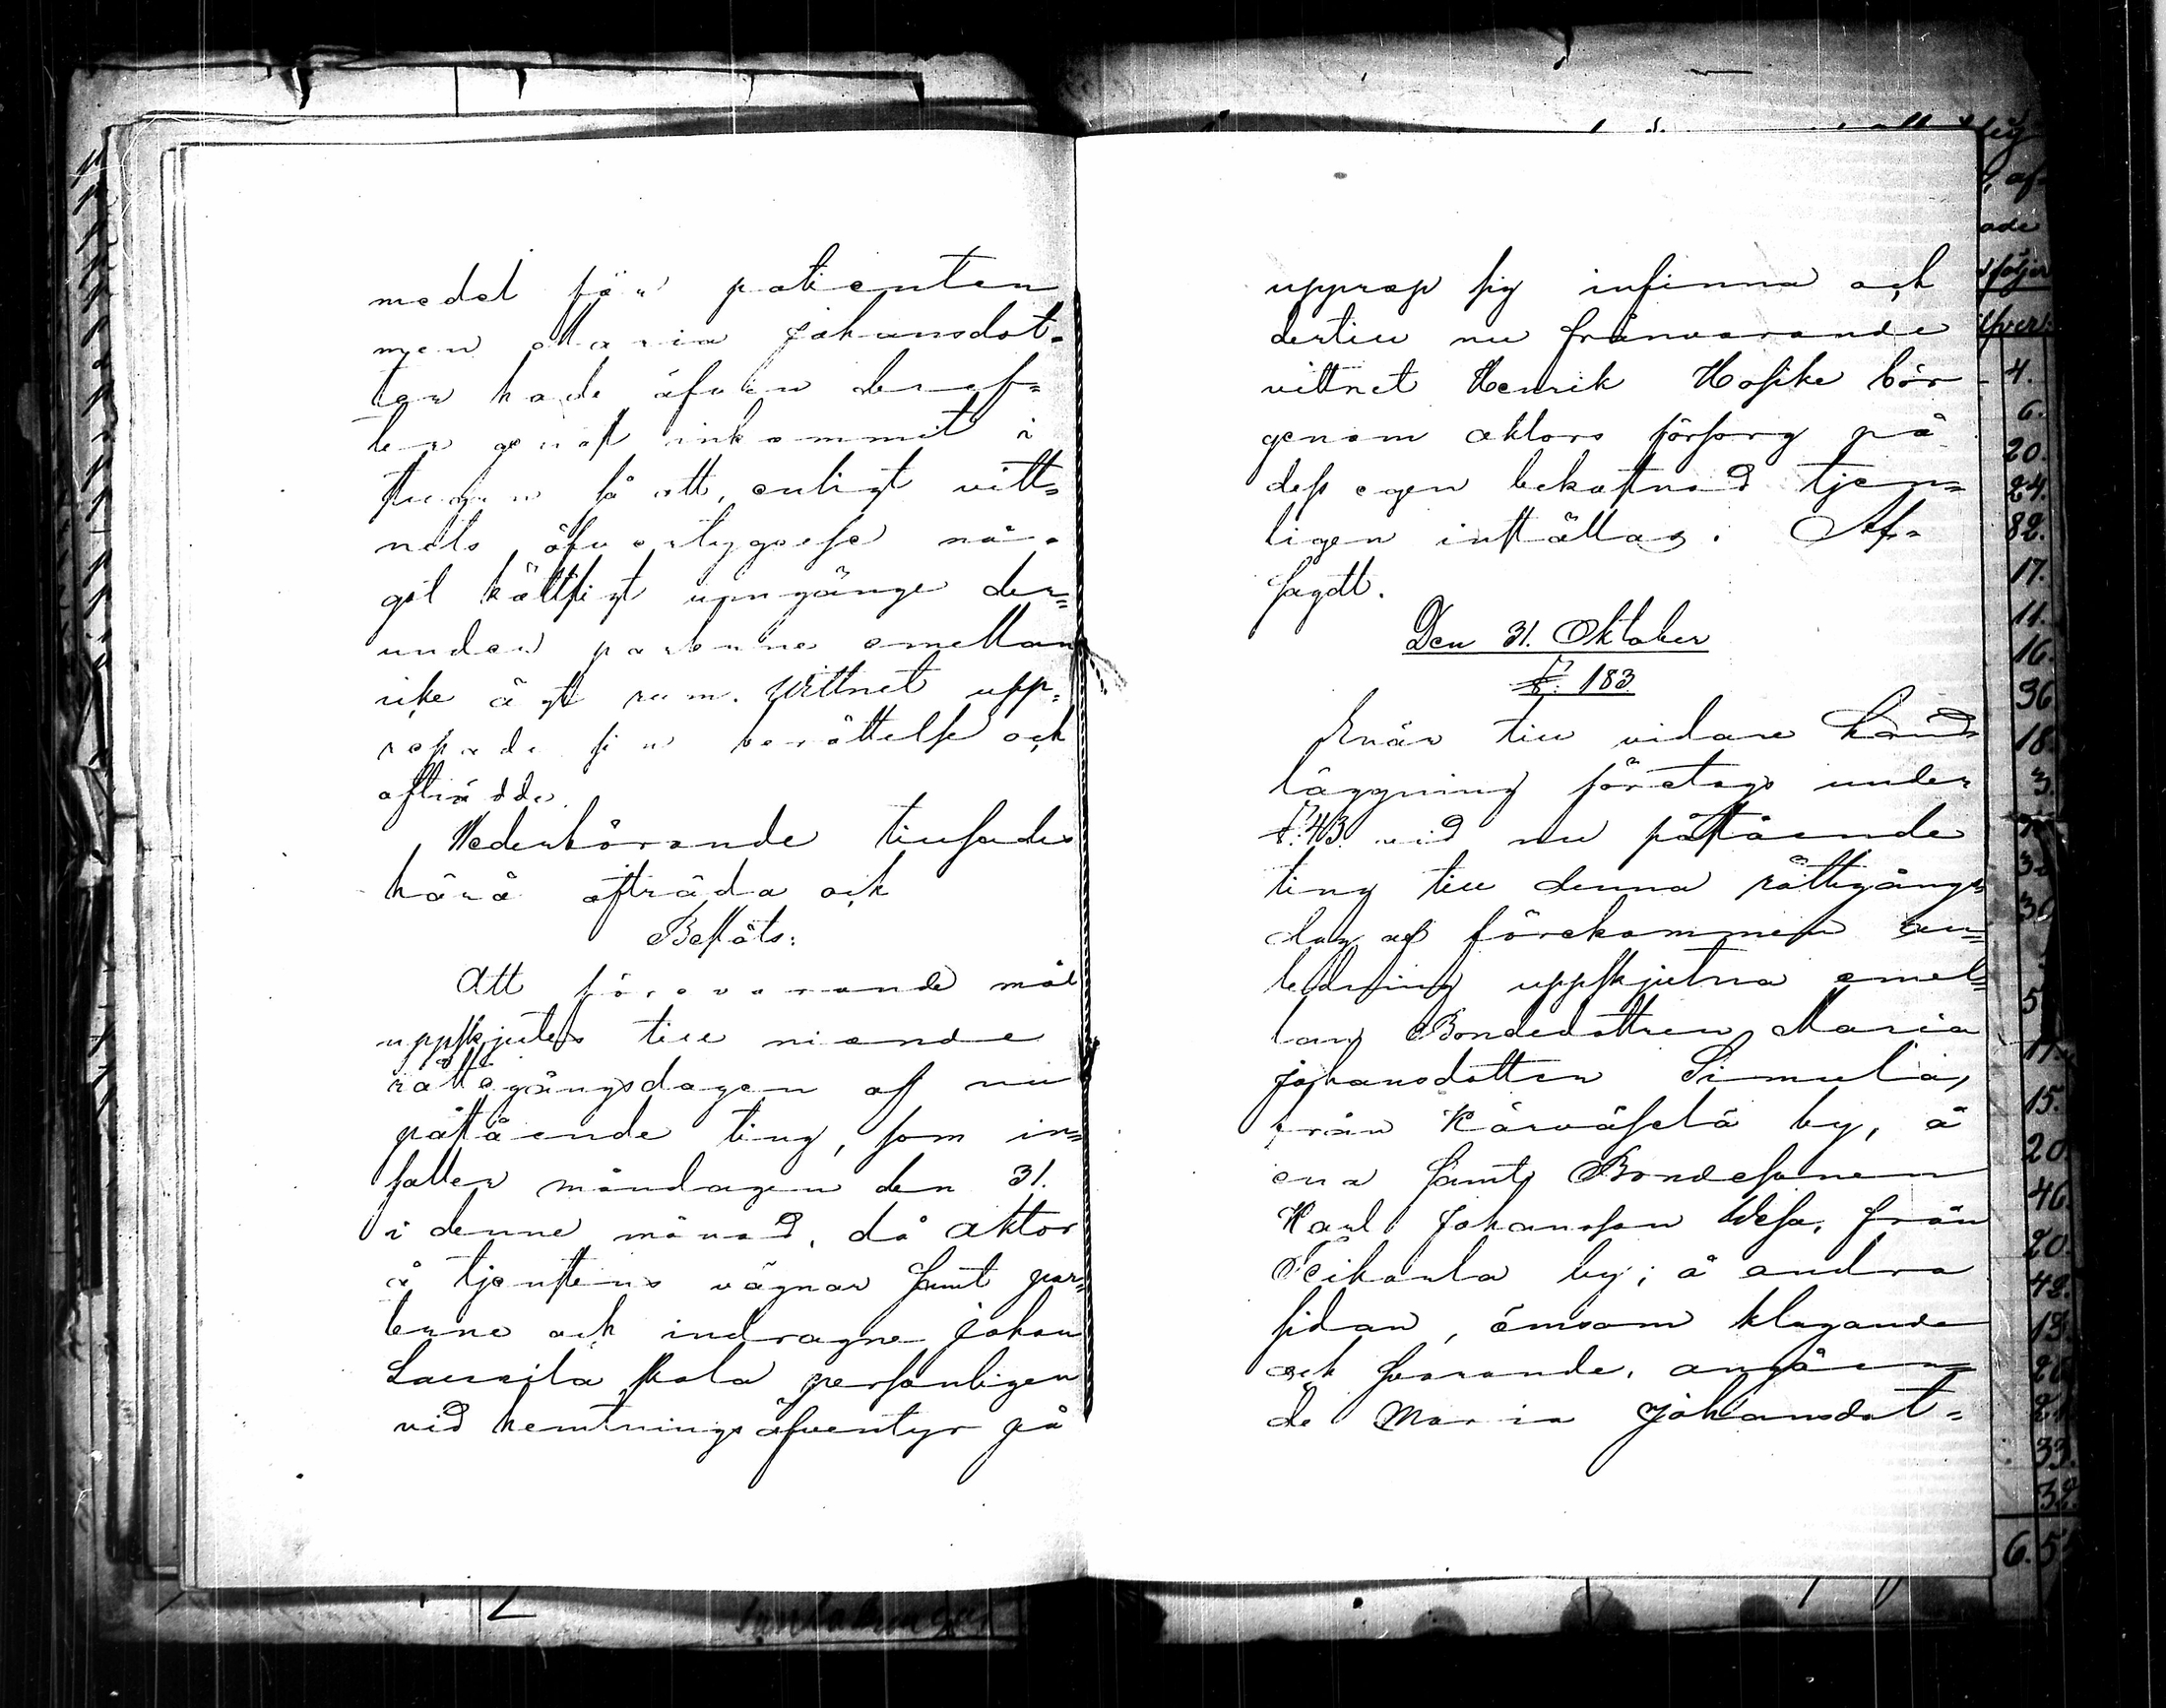 medel för patienten
men Maria Johansdot-
ter hade äfven deref-
ter genast inkommit i
stugan så att, enligt vitt-
nets öfvertygelse nå-
got köttsligt umgänge der-
under parterne emellan
icke ägt rum. Vittnet upp-
repade sin berättelse och
afträdde.
Vederbörande tillsades
härå afträda och
Beslöts:
Att förevarande mål
uppskjutes till niande
rättegångsdagen af nu
påstående ting, som in-
faller måndagen den 31.
i denne månad, då aktor
å tjenstens vägnar samt par-
terne och indragne Johan
Laurila skola personligen
vid hemtningsäfventyr på
upprop sig infinna och
dertill nu frånvarande
vittnet Henrik Hosike bör
genom aktors försorg på
dess egen bekostnad tjen-
ligen inställas. Af-
sagdt.
Den 31. Oktober
§. 183.
Enär till vidare hand-
läggning företogs under
§. 43. vid nu påstående
ting till denna rättegångs-
dag af förekommen an-
ledning uppskjutna emel-
lan Bondedottren Maria
Johansdotter Simula,
från Kärväselä by, å
ena samt Bondesonen
Karl Johansson Wesa, från
Peikarla by; å andra
sidan, ömsom klagande
och svarande, angåen-
de Maria Johansdot-
4.
6.
20.
24.
82.
17.
11.
16.
36
18.
3
15.
20.
46.
20.
42.
13.
33.
32.